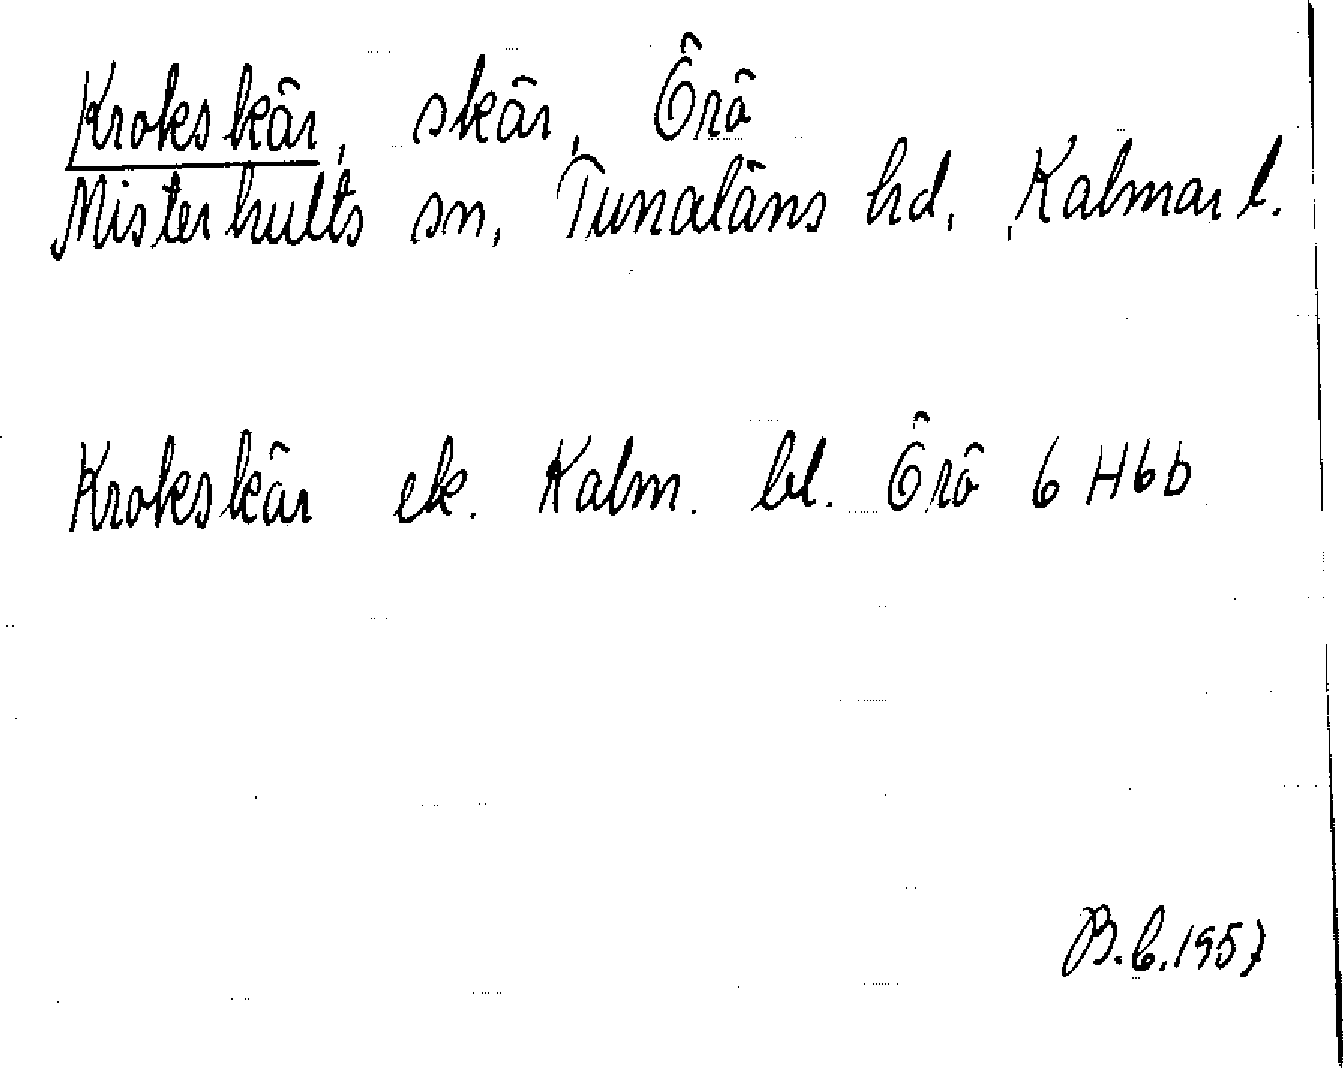 Krokskär, skär, Örö
Misterhults sn, Tunaläns hd, Kalmar l.
Krokskär ek. Kalm. bl. Örö 6 H6b
B.C.1957